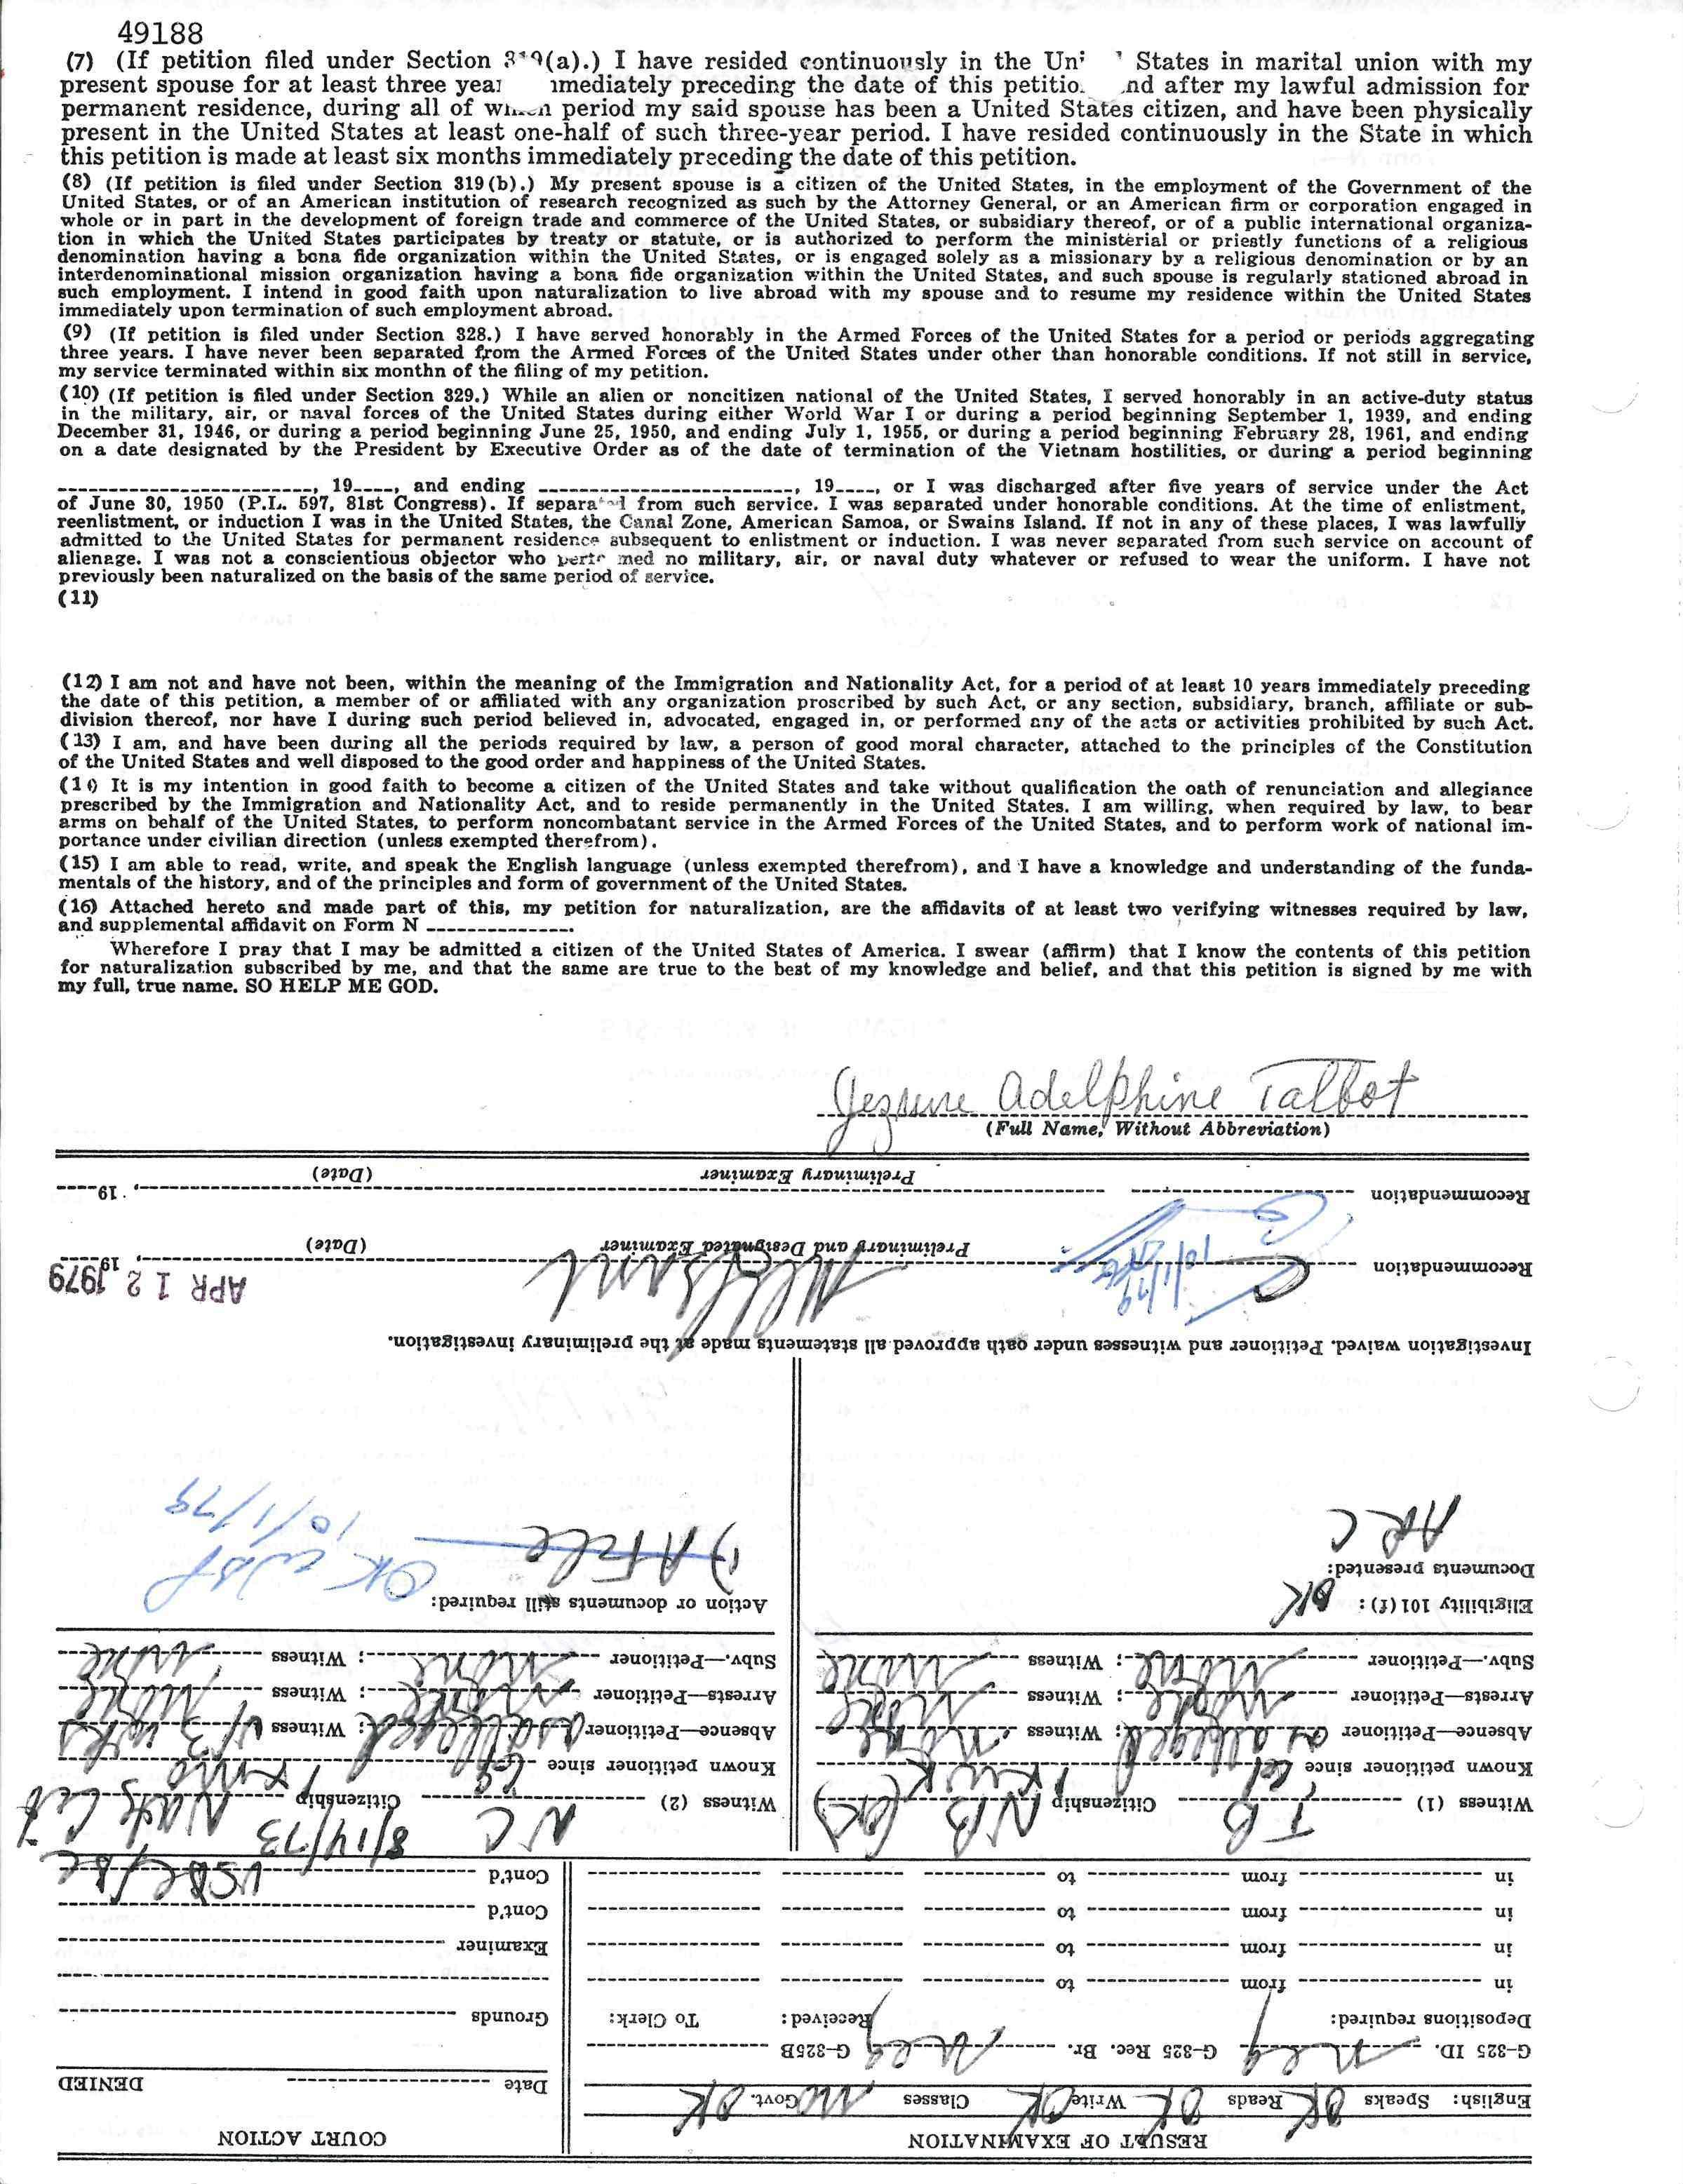 49188
(7) (If petition filed under Section (a).) I have resided continuously in the States in marital union with my
present spouse for at least three preceding the date of this after my lawful admission for
permanent residence, during all of period my said spouse has been a United States citizen, and have been physically
present in the United States at least one-half of such three-year period. I have resided continuously in the State in which
this petition is made at least six months immediately preceding the date of this petition.
(8) (If petition is filed under Section 319(b).) My present spouse is a citizen of the United States, in the employment of the Government of the
United States, or of an American institution of research recognized as such by the Attorney General, or an American firm or corporation engaged in
whole or in part in the development of foreign trade and commerce of the United States, or subsidiary thereof, or of a public international organiza-
tion in which the United States participates by treaty or statute, or is authorized to perform the ministerial or priestly functions of a religious
denomination having a bona fide organization within the United States, or is engaged solely as a missionary by a religious denomination or by an
interdenominational mission organization having a bona fide organization within the United States, and such spouse is regularly stationed abroad in
such employment. I intend in good faith upon naturalization to live abroad with my spouse and to resume my residence within the United States
immediately upon termination of such employment abroad.
(9) (If petition is filed under Section 328.) I have served honorably in the Armed Forces of the United States for a period or periods aggregating
three years. I have never been separated from the Armed Forces of the United States under other than honorable conditions. If not still in service,
my service terminated within six monthn of the filing of my petition.
(10) (If petition is filed under Section 329.) While an alien or noncitizen national of the United States, I served honorably in an active-duty status
in the military, air, or naval forces of the United States during either World War I or during a period beginning September 1, 1939, and ending
December 31, 1946, or during a period beginning June 25, 1950, and ending July 1, 1955, or during a period beginning February 28, 1961, and ending
on a date designated by the President by Executive Order as of the date of termination of the Vietnam hostilities, or during a period beginning
, 19----, and ending , 19----, or I was discharged after five years of service under the Act
of June 30, 1950 (P.L. 597, 81st Congress). If separated from such service. I was separated under honorable conditions. At the time of enlistment,
reenlistment, or induction I was in the United States, the Canal Zone, American Samoa, or Swains Island. If not in any of these places, I was lawfully
admitted to the United States for permanent residence subsequent to enlistment or induction. I was never separated from such service on account of
alienage. I was not a conscientious objector who performed no military, air, or naval duty whatever or refused to wear the uniform. I have not
previously been naturalized on the basis of the same period of service.
(11)
(12) I am not and have not been, within the meaning of the Immigration and Nationality Act, for a period of at least 10 years immediately preceding
the date of this petition, a member of or affiliated with any organization proscribed by such Act, or any section, subsidiary, branch, affiliate or sub-
division thereof, nor have I during such period believed in, advocated, engaged in, or performed any of the acts or activities prohibited by such Act.
(13) I am, and have been during all the periods required by law, a person of good moral character, attached to the principles of the Constitution
of the United States and well disposed to the good order and happiness of the United States.
(14) It is my intention in good faith to become a citizen of the United States and take without qualification the oath of renunciation and allegiance
prescribed by the Immigration and Nationality Act, and to reside permanently in the United States. I am willing, when required by law, to bear
arms on behalf of the United States, to perform noncombatant service in the Armed Forces of the United States, and to perform work of national im-
portance under civilian direction (unless exempted therefrom).
(15) I am able to read, write, and speak the English language (unless exempted therefrom), and I have a knowledge and understanding of the funda-
mentals of the history, and of the principles and form of government of the United States.
(16) Attached hereto and made part of this, my petition for naturalization, are the affidavits of at least two verifying witnesses required by law,
and supplemental affidavit on Form N
Wherefore I pray that I may be admitted a citizen of the United States of America. I swear (affirm) that I know the contents of this petition
for naturalization subscribed by me, and that the same are true to the best of my knowledge and belief, and that this petition is signed by me with
my full, true name. SO HELP ME GOD.
Adelphine Talbot
(Full Name, Without Abbreviation)
RESULT OF EXAMINATION
COURT ACTION
English: Speaks OK Reads OK Write OK Classes No Govt. OK
Date DENIED
G-325 ID. Neg G-325 Rec. Br. Neg G-325B
Depositions required: Received: To Clerk:
Grounds
in from to
in from to
Examiner
in from to
Cont'd
in from to
Cont'd
Witness (1) TB Citizenship NB (OK)
Known petitioner since
Absence—Petitioner as alleged; Witness None
Arrests—Petitioner None; Witness None
Subv.—Petitioner None; Witness None
Eligibility 101(f): OK
Documents presented:
ARC
Witness (2) NC Citizenship 8/14/73
Known petitioner since
Absence—Petitioner as alleged; Witness
Arrests—Petitioner None; Witness None
Subv.—Petitioner None; Witness None
Action or documents still required:
1) A File
OK
10/1/79
Investigation waived. Petitioner and witnesses under oath approved all statements made at the preliminary investigation.
Recommendation 10/1/79 APR 12 1979
Preliminary and Designated Examiner (Date)
Recommendation , 19
Preliminary Examiner (Date)